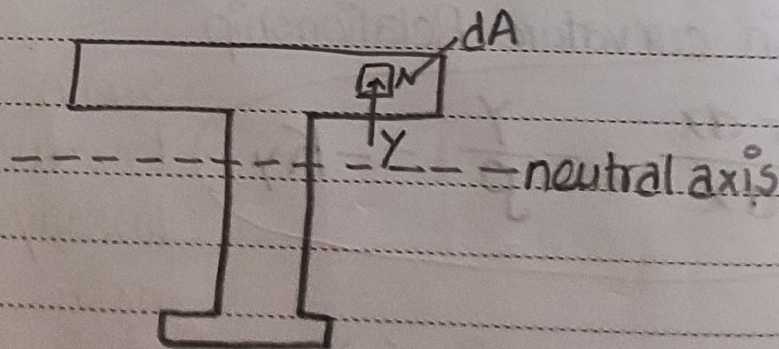 dA
Y
neutral axis